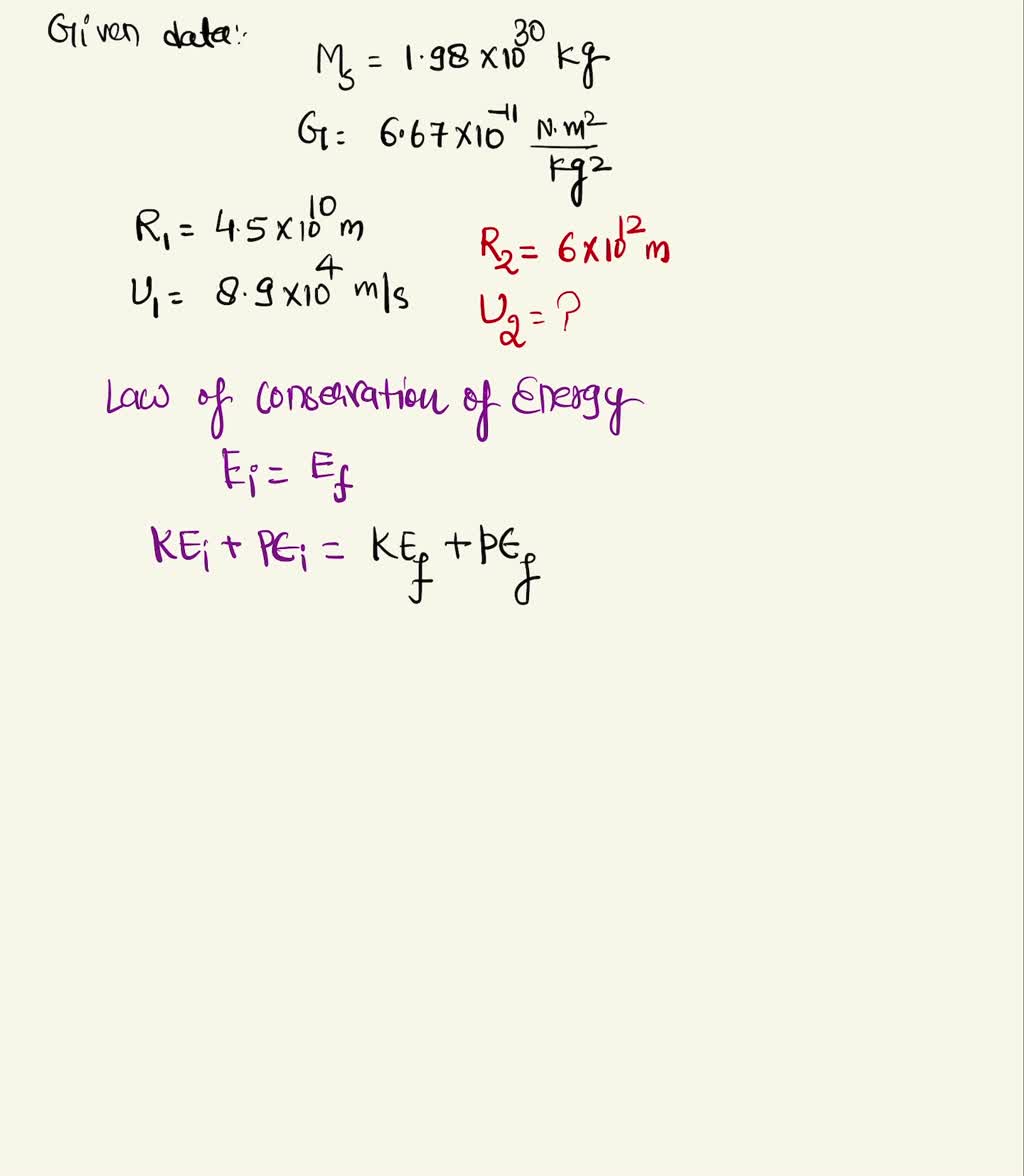 Given data:
M_s = 1.98 × 10^30 kg
G = 6.67 × 10^-11 N.m^2/kg^2
R_1 = 4.5 × 10^10 m
R_2 = 6 × 10^12 m
U_1 = 8.9 × 10^4 m/s
U_2 = ?
Law of conservation of Energy
E_i = E_f
KE_i + PE_i = KE_f + PE_f